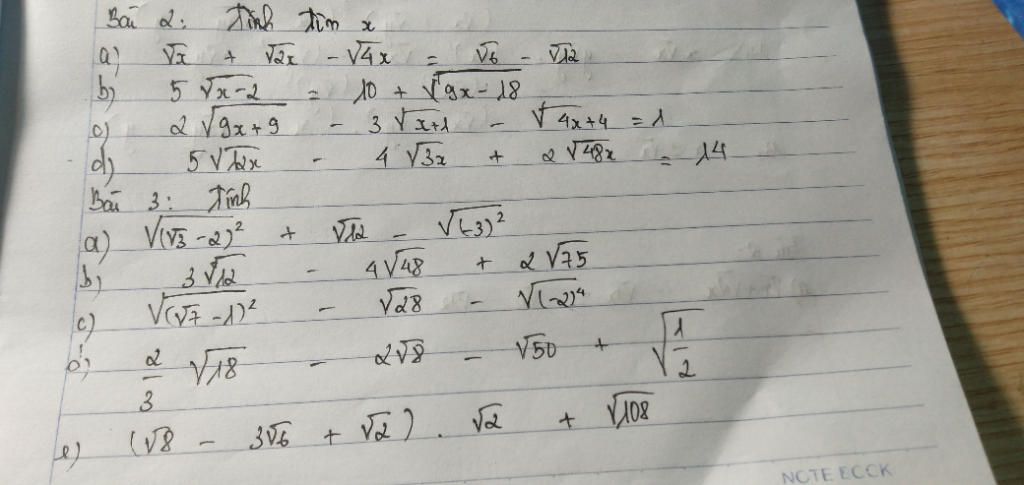 Bài 2: Tính tìm x
a) √x + √2x - √4x = √6 - √12
b) 5 √(x-2) = 10 + √(9x-18)
c) 2 √(9x+9) - 3 √(x+1) - √(4x+4) = 1
d) 5√12x - 4 √3x + 2 √48x = 14
Bài 3: Tính
a) √((√3 - 2)²) + √12 - √((-3)²)
b) 3√12 - 4√48 + 2√75
c) √((√7 - 1)²) - √28 - √((-2)⁴)
d) 2/3 √18 - 2√8 - √50 + √(1/2)
e) (√8 - 3√6 + √2) . √2 + √108
NOTE BOOK